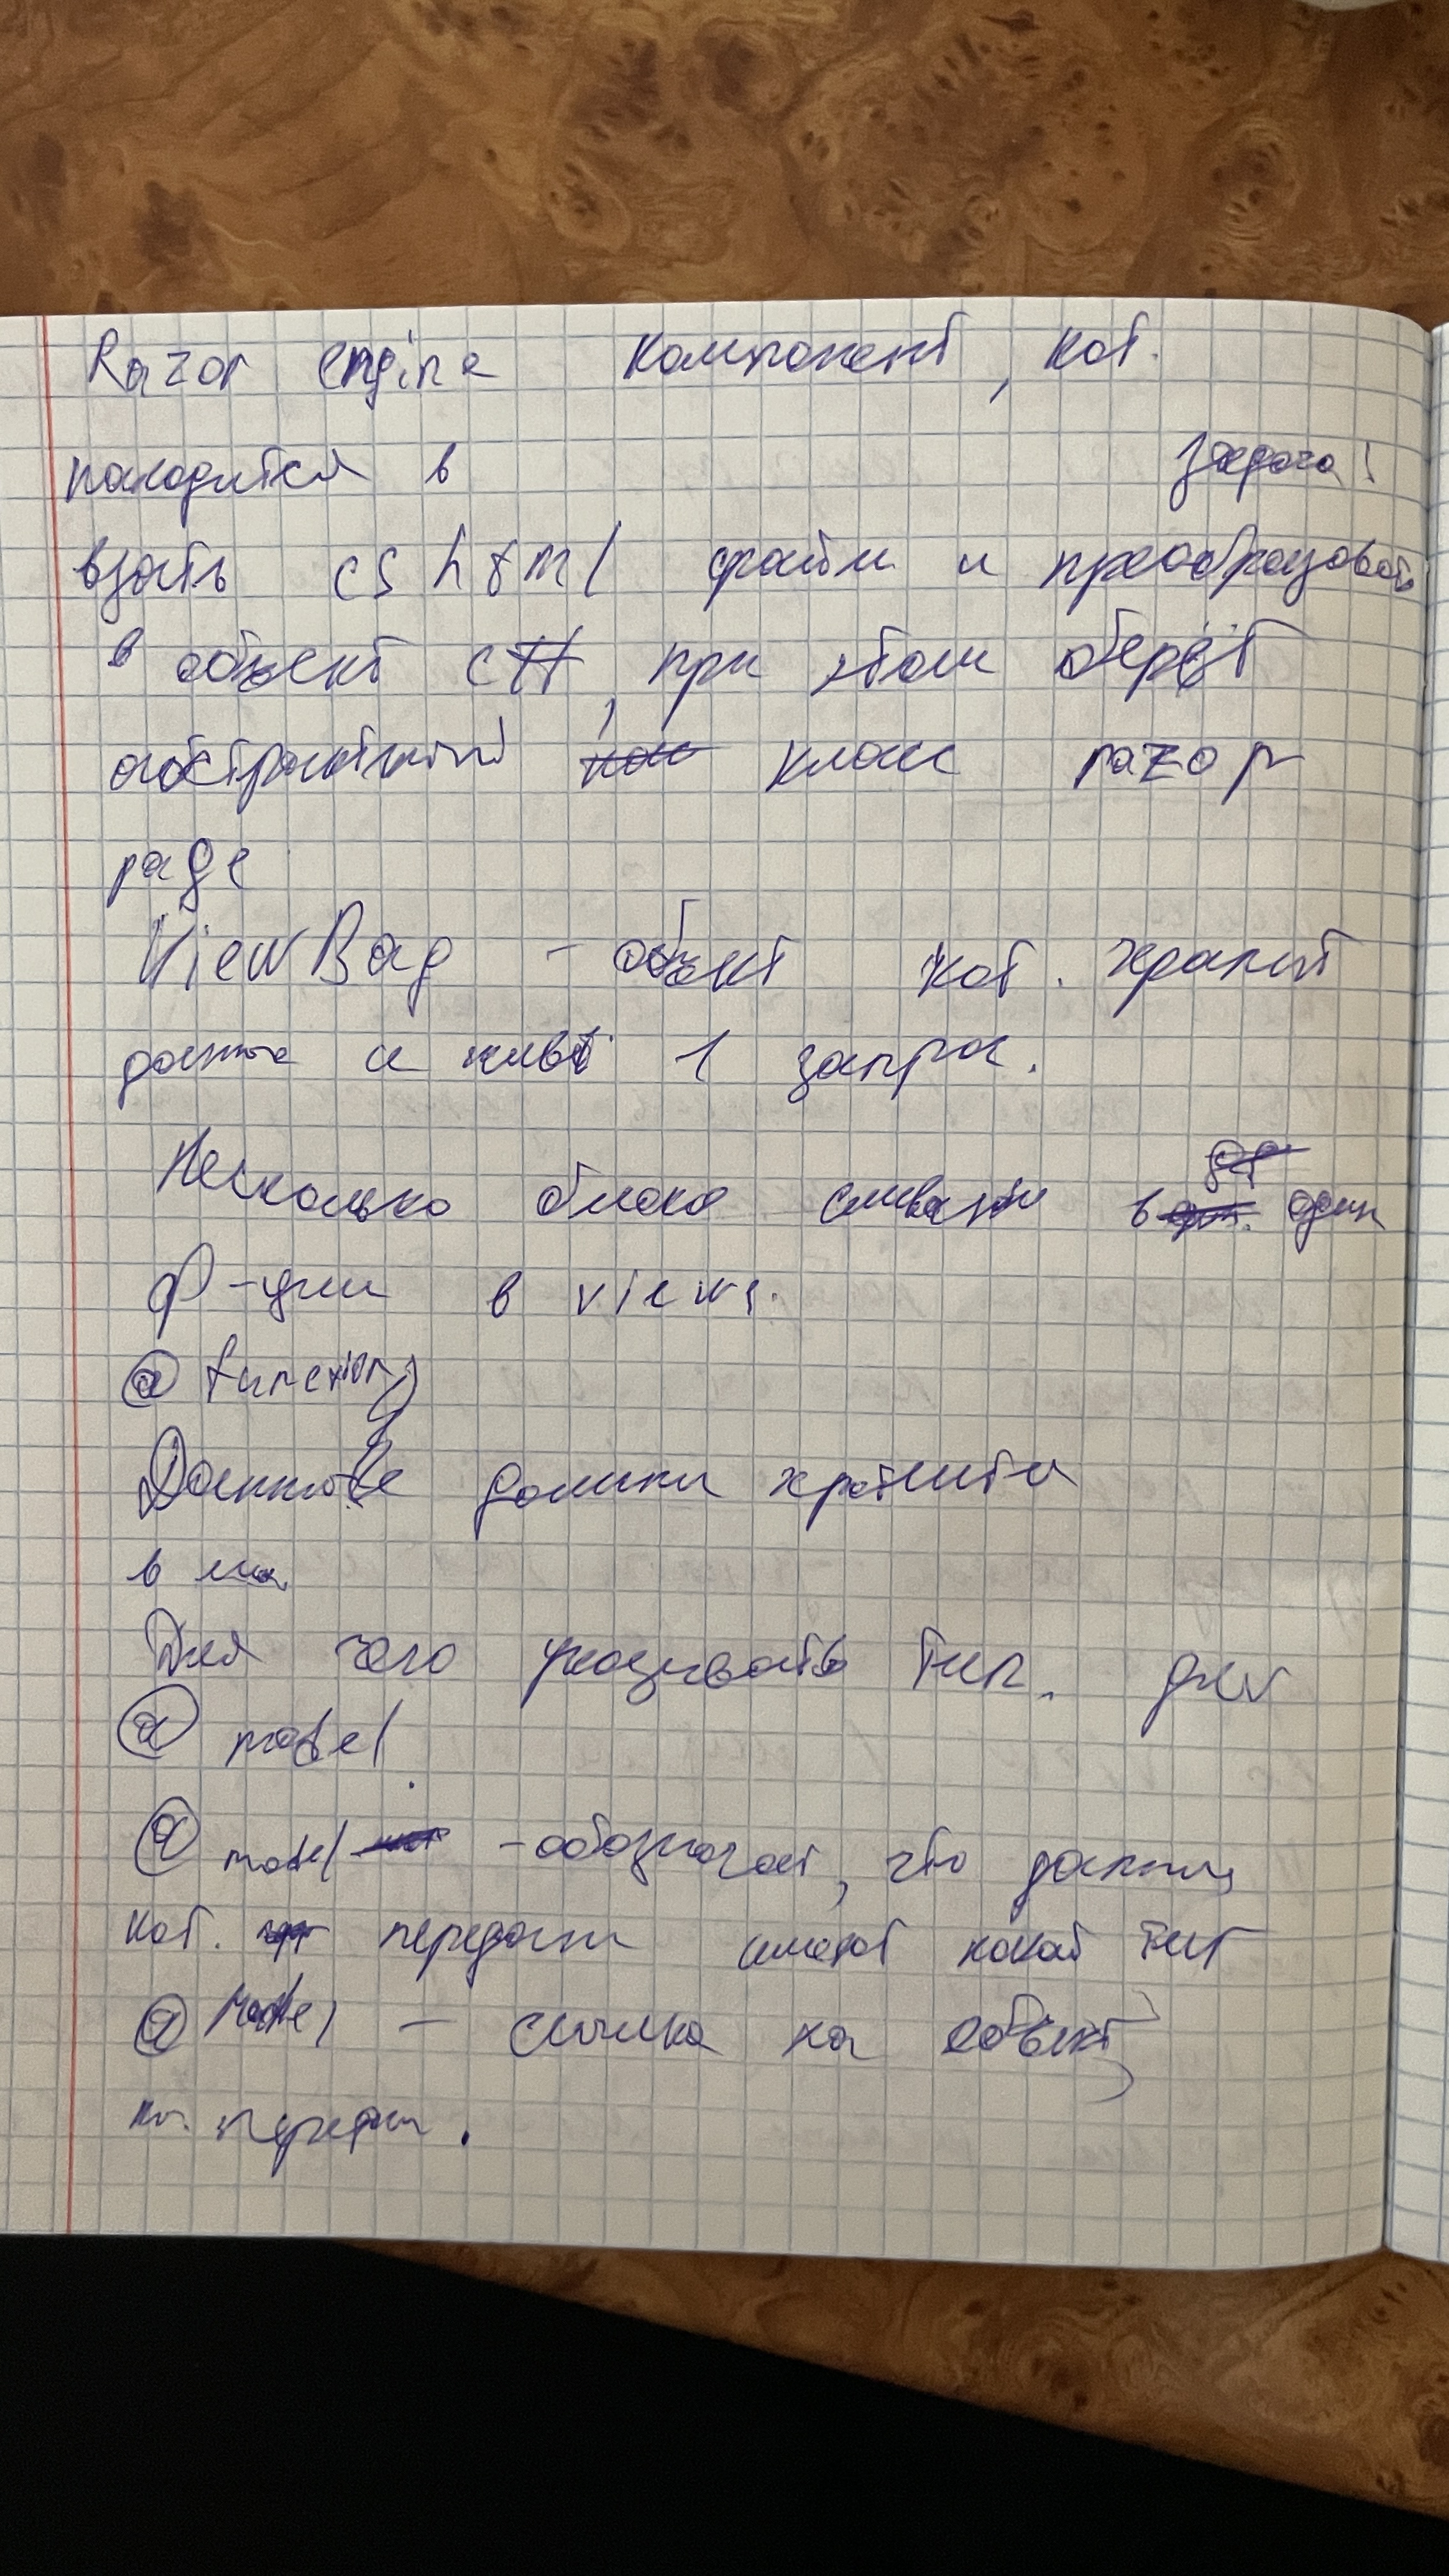 Razor engine компонент, кот.
находится в задача!
взять cshtml файл и преобразовать
в объект c#, при этом берёт
абстрактный класс razor
page
ViewBag - объект кот. хранит
данные и живёт 1 запрос.
Несколько блоков в один
ф-ции в views.
@functions
Данные должны храниться
в
Для чего указывать тип. для
@ model.
@ model - обозначает, что данные,
кот. передали имеют какой тип
@ Model - ссылка на объект,
передали.